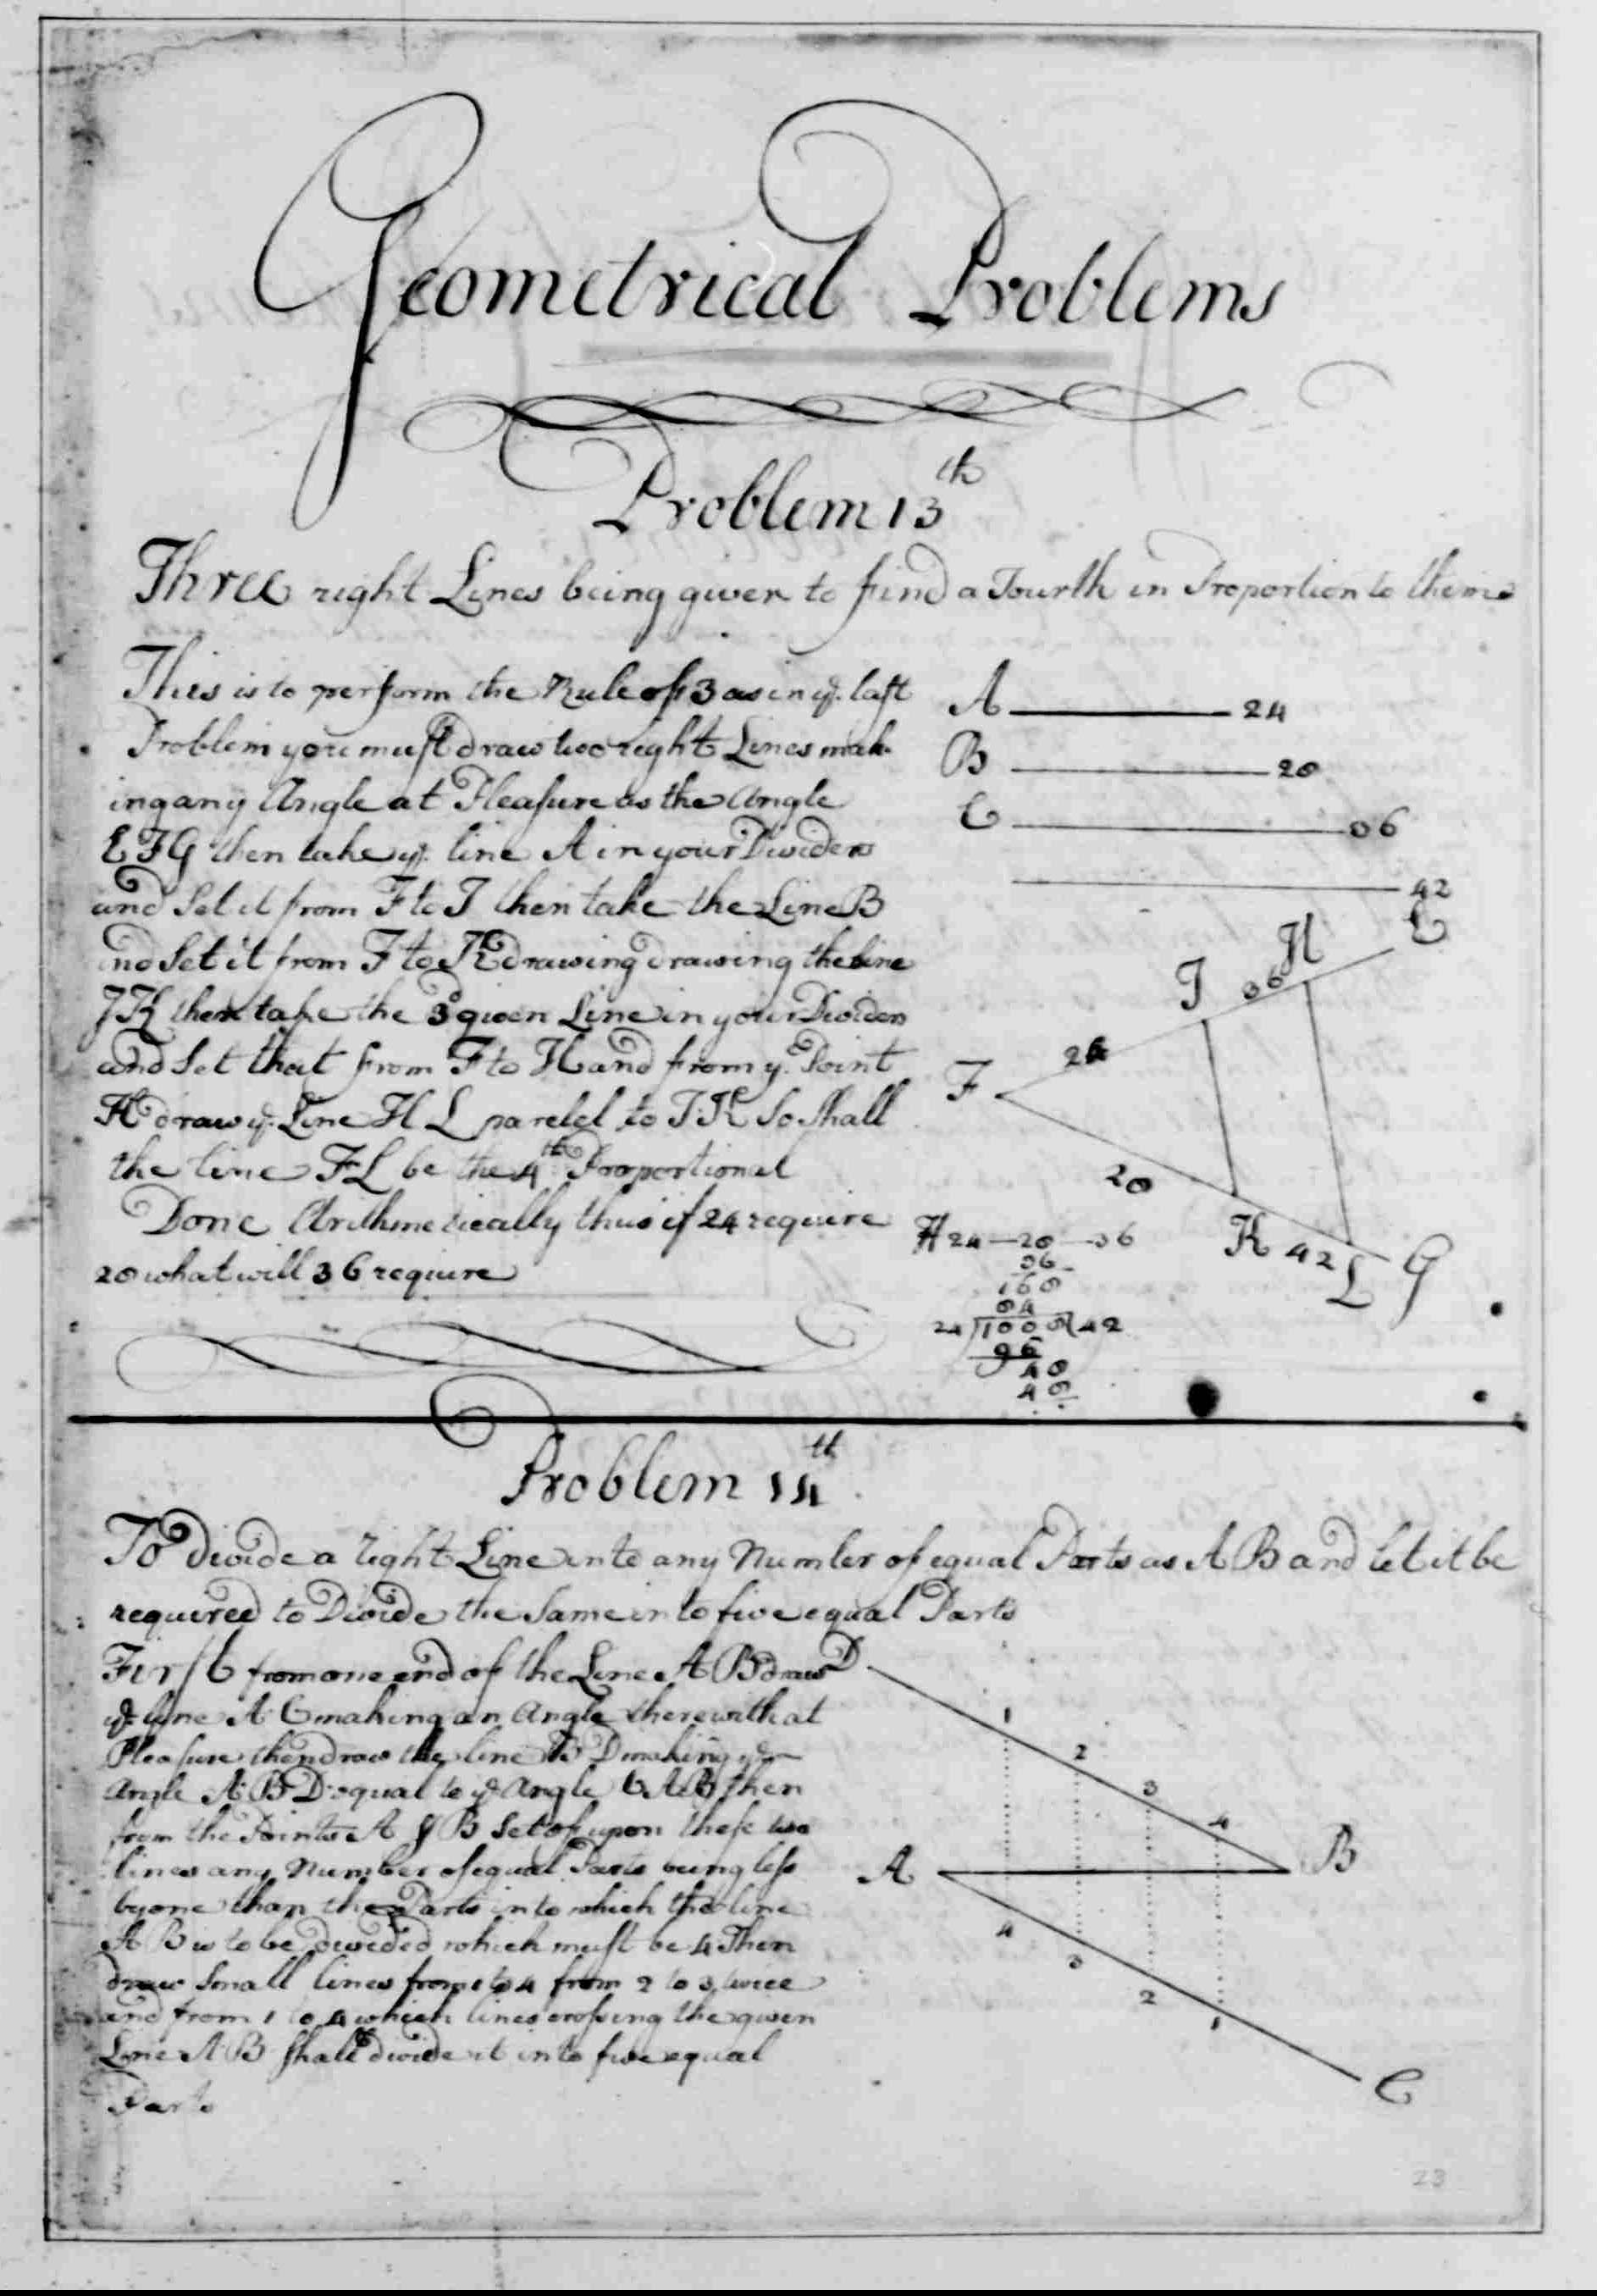 Geometrical Problems
Problem 13th
Three right Lines being given to find a Fourth in Proportion to them
This is to perform the Rule of 3 as in ye last
Problem you must draw two right Lines mak
ing any Angle at Pleasure as the Angle
EFG then take ye line A in your Dividers
and Set it from F to I then take the Line B
and Set it from F to K drawing drawing the line
IK then take the 3d given Line in your Dividers
and Set that from F to H and from ye Point
H draw ye Line H L parelel to I K So Shall
the line FL be the 4th Proportional
Done Arithmetically thus if 24 require
28 what will 36 require
A 24
B 28
C 36
42
E
H
36
I
24
F
28
K 42 L G
If 24—28—36
36
168
84
24)1008(42
96
48
48
Problem 14th
To divide a right Line into any Number of equal Parts as A B and let it be
required to Divide the Same into five equal Parts
First from one end of the Line A B draw
ye line A C making an Angle therewith at
Pleasure then draw the line B D making ye
Angle A B D equal to ye Angle C A B then
from the Points A & B Set of upon these two
lines any Number of equal Parts being less
by one than the Parts into which the line
A B is to be divided which must be 4 Then
draw Small lines from 1 to 4 from 2 to 3 twice
and from 1 to 4 which lines crossing the given
Line A B Shall divide it into five equal
Parts
D
1
2
3
4
A
B
4
3
2
1
C
23